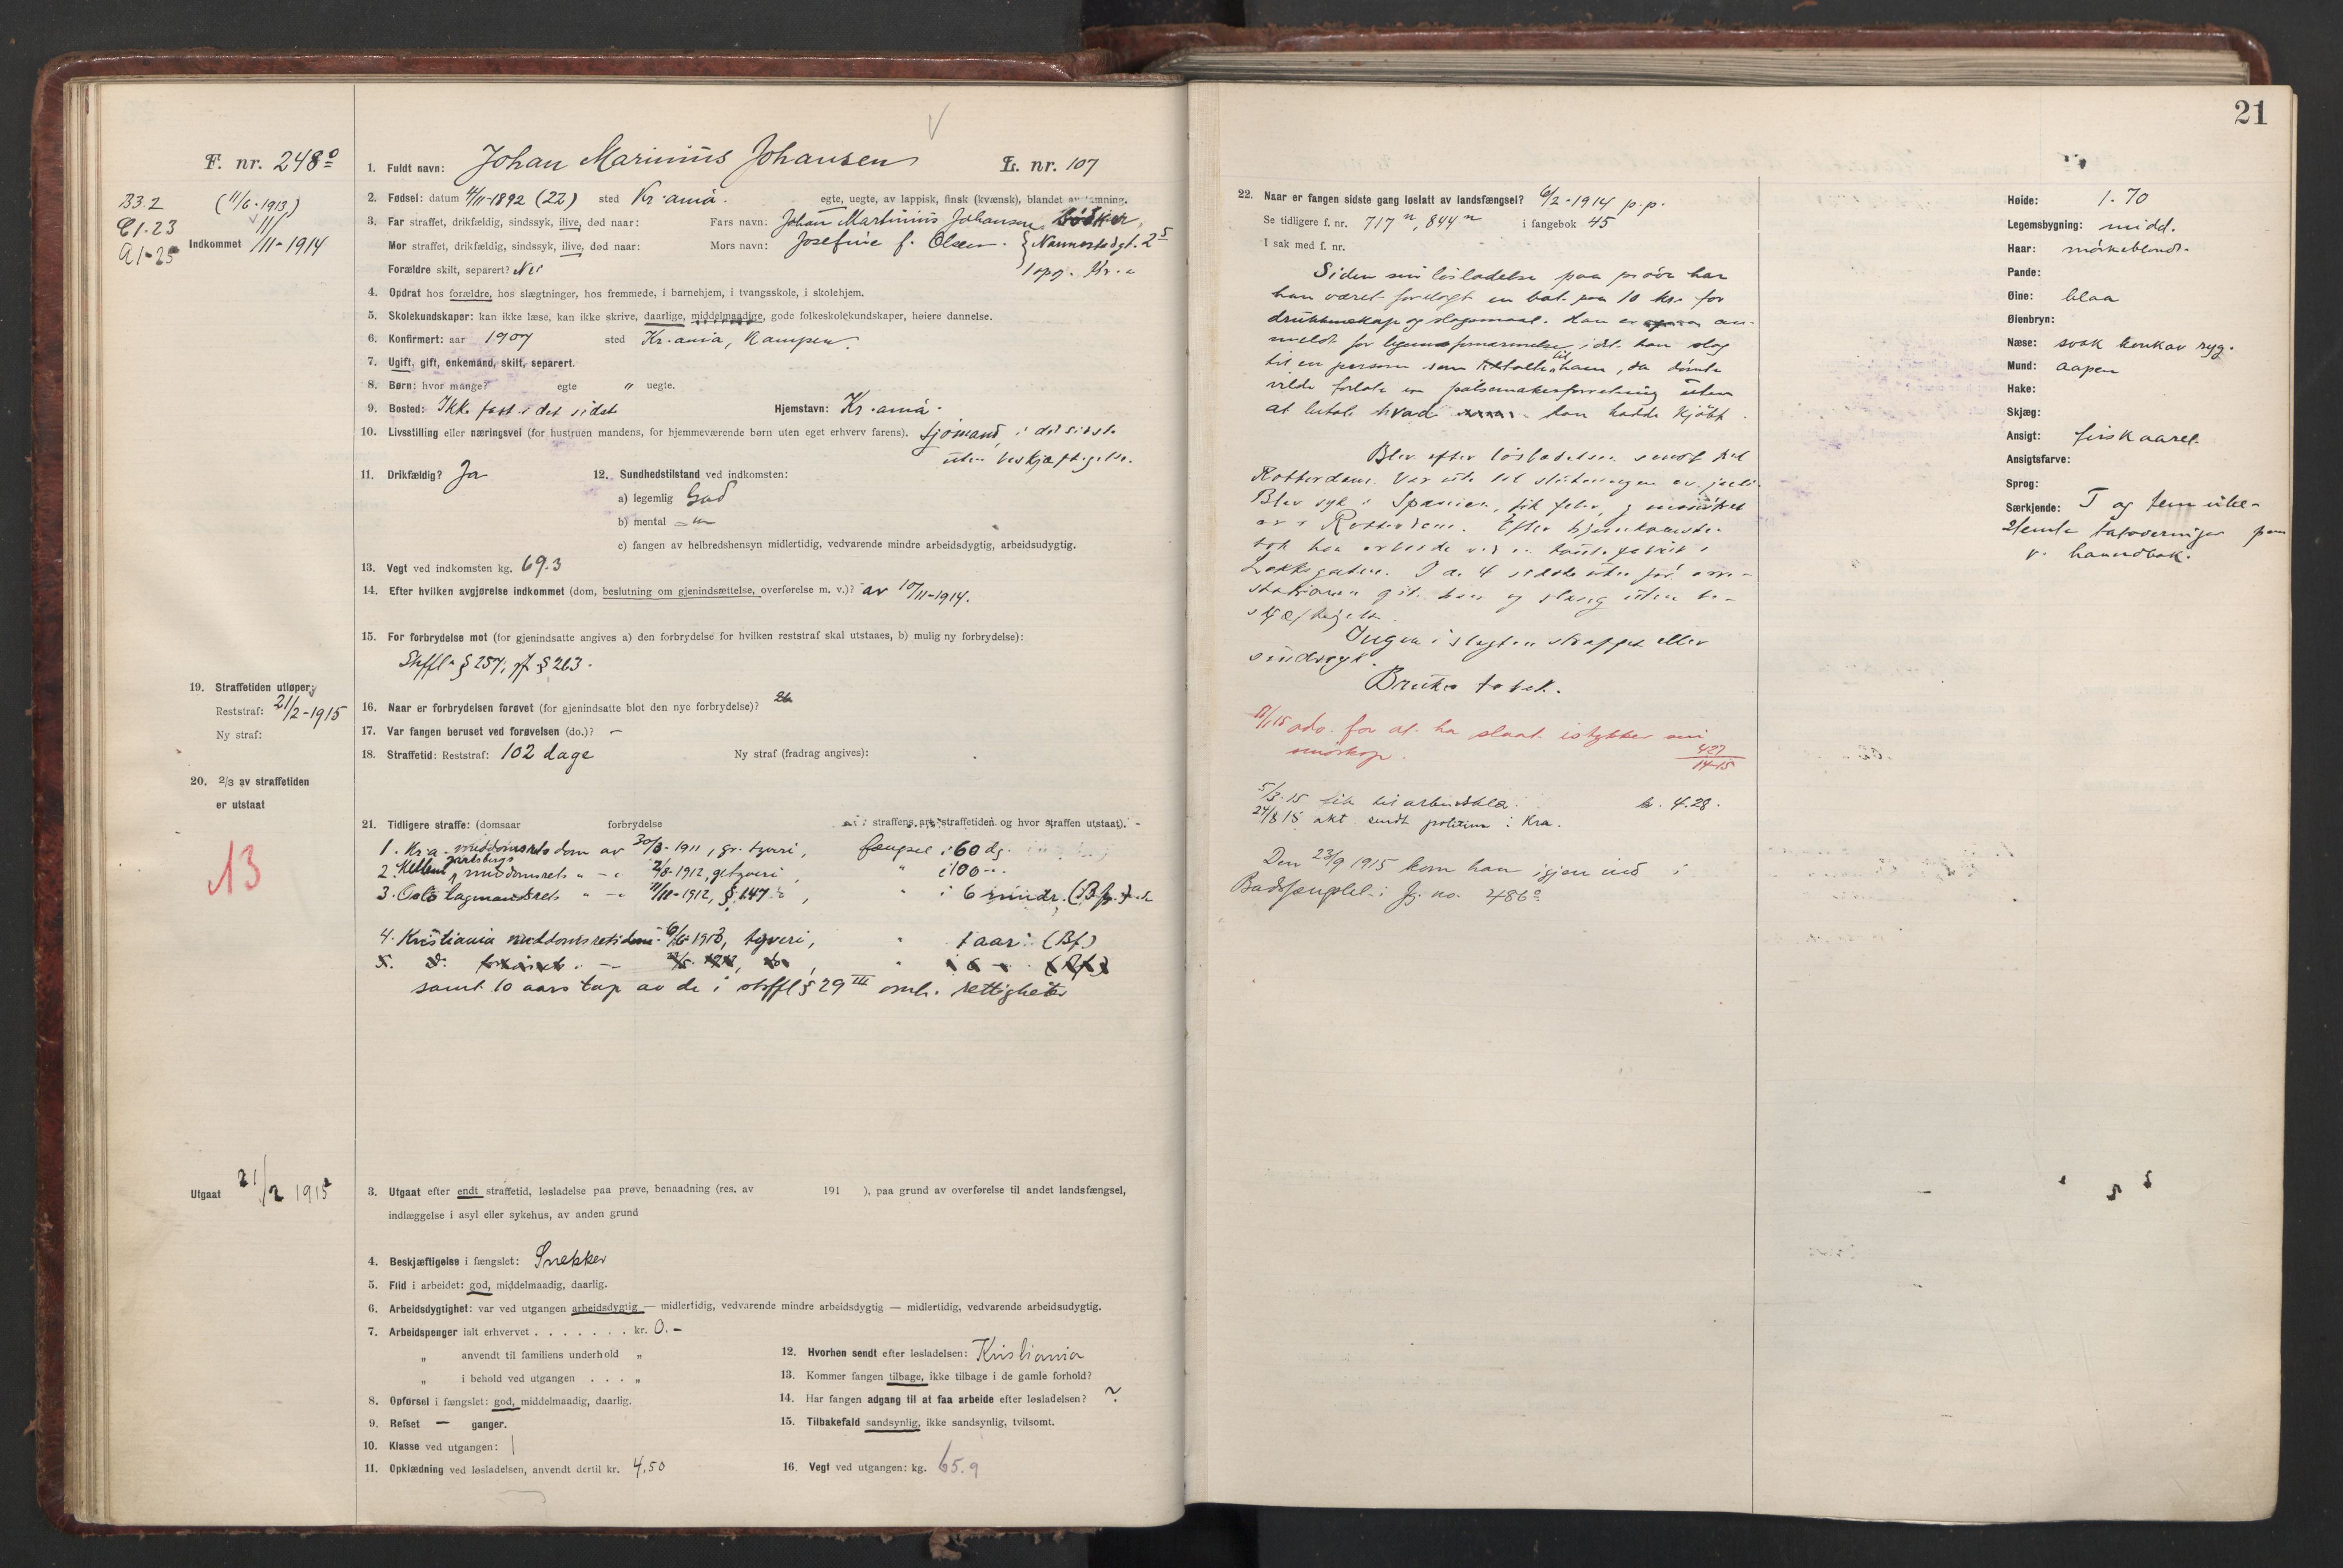 F. nr. 248º
B3.2 (11/6-1913)
C1-23
A1-25
Indkommet 11/11-1914
1. Fuldt navn: Johan Marinius Johansen L. nr. 107
2. Fødsel: datum 4/11-1892 (22) sted Kr.ania. egte, uegte, av lappisk, finsk (kvænsk), blandet avstamning.
3. Far straffet, drikfældig, sindssyk, ilive, død naar: Fars navn: Johan Martinius Johansen, Bødker,
Mor straffet, drikfældig, sindssyk, ilive, død naar: Mors navn: Josefine f. Olsen. Nannestadgt. 2 5
Forældre skilt, separert? Nei 1 opg. Kr.a
4. Opdrat hos forældre, hos slægtninger, hos fremmede, i barnehjem, i tvangsskole, i skolehjem.
5. Skolekundskaper: kan ikke læse, kan ikke skrive, daarlige, middelmaadige, gode folkeskolekundskaper, høiere dannelse.
6. Konfirmert: aar 1907 sted Kr.ania, Kampen.
7. Ugift, gift, enkemand, skilt, separert.
8. Børn: hvor mange? egte " uegte.
9. Bosted: Ikke fast i det sidste Hjemstavn: Kr.ania.
10. Livsstilling eller næringsvei (for hustruen mandens, for hjemmeværende børn uten eget erhverv farens). Sjømand, i det sidste
uten beskjæftigelse.
11. Drikfældig? Ja 12. Sundhedstilstand ved indkomsten:
a) legemlig God
b) mental - " -
c) fangen av helbredshensyn midlertidig, vedvarende mindre arbeidsdygtig, arbeidsudygtig.
13. Vegt ved indkomsten kg. 69.3
14. Efter hvilken avgjørelse indkommet (dom, beslutning om gjenindsættelse, overførelse m. v.)? av 10/11-1914.
15. For forbrydelse mot (for gjenindsatte angives a) den forbrydelse for hvilken reststraf skal utstaaes, b) mulig ny forbrydelse):
Strffl. § 257, jf § 263.
19. Straffetiden utløper:
Reststraf: 21/2-1915
Ny straf:
16. Naar er forbrydelsen forøvet (for gjenindsatte blot den nye forbrydelse)?
17. Var fangen beruset ved forøvelsen (do.)? -
18. Straffetid: Reststraf: 102 dage Ny straf (fradrag angives):
20. 2/3 av straffetiden
er utstaat
21. Tidligere straffe: (domsaar forbrydelse straffens art, straffetiden og hvor straffen utstaat).
13
1. Kr.a. meddomsrets dom av 30/3-1911, gr. tyveri, fængsel i 60 dg.
2. Jarlsbergs meddomsrets " - " 2/8-1912, gr. tyveri, " i 100 - "
3. Oslo lagmandsrets " - " 11/11-1912, § 147 , " i 6 mndr.
4. Kristiania meddomsretsdom 6/6 1913, tyveri, " 1 aar. (Bf.)
samt 10 aars tap av de i strffl § 29 III omh. rettigheter
Utgaat 21/2 1915
3. Utgaat efter endt straffetid, løsladelse paa prøve, benaadning (res. av 191 ), paa grund av overførelse til andet landsfængsel,
indlæggelse i asyl eller sykehus, av anden grund
4. Beskjæftigelse i fængslet: Snekker
5. Flid i arbeidet: god, middelmaadig, daarlig.
6. Arbeidsdygtighet: var ved utgangen arbeidsdygtig — midlertidig, vedvarende mindre arbeidsdygtig — midlertidig, vedvarende arbeidsudygtig.
7. Arbeidspenger ialt erhvervet . . . . . . . kr. 0.-
" anvendt til familiens underhold "
" i behold ved utgangen . . . "
8. Opførsel i fængslet: god, middelmaadig, daarlig.
9. Refset — ganger.
10. Klasse ved utgangen: 1
11. Opklædning ved løsladelsen, anvendt dertil kr. 4,50
12. Hvorhen sendt efter løsladelsen: Kristiania
13. Kommer fangen tilbage, ikke tilbage i de gamle forhold?
14. Har fangen adgang til at faa arbeide efter løsladelsen? ~
15. Tilbakefald sandsynlig, ikke sandsynlig, tvilsomt.
16. Vegt ved utgangen: kg. 65.9
21
22. Naar er fangen sidste gang løslatt av landsfængsel? 6/2-1914 p.p.
Se tidligere f. nr. 717 n, 844 n i fangebok 45
I sak med f. nr.
Siden sin løsladelse paa prøve har
han været forelagt en bot paa 10 kr. for
drukkenskap og slagsmaal. Han er an-
meldt for legemsfornærmelse, idet han slog
til en person som tiltalte ham, da dømte
vilde forlate en pølsemakerforretning uten
at betale hvad han hadde kjøbt.
Blev efter løsladelsen sendt til
Rotterdam. Var ute til slutningen av juli.
Blev syk i Spanien, fik feber, og mønstret
av i Rotterdam. Efter hjemkomsten
tok han arbeide ved en
gaten. I de 4 sidste uker før arre-
stationen gik han og slang uten be-
skjæftigelse.
Ingen i slegten straffet eller
sindssyk.
Bruker tobak.
11/1 15 adv. for at ha slaat istykker sin
smørkop. 427/14-15
5/3-15 fik til arbeidsklær kr. 4.28.
24/8 15 akt. sendt politiet i Kra.
Den 23/9 1915 kom han igjen ind i
Bodsfængslet i fg. no. 486º
Høide: 1.70
Legemsbygning: midd.
Haar: mørkeblond.
Pande:
Øine: blaa
Øienbryn:
Næse: svak konkav ryg.
Mund: aapen
Hake:
Skjæg:
Ansigt: firskaaret.
Ansigtsfarve:
Sprog:
Særkjende: T og fem ube-
stemte tatoveringer paa
v. haandbak.